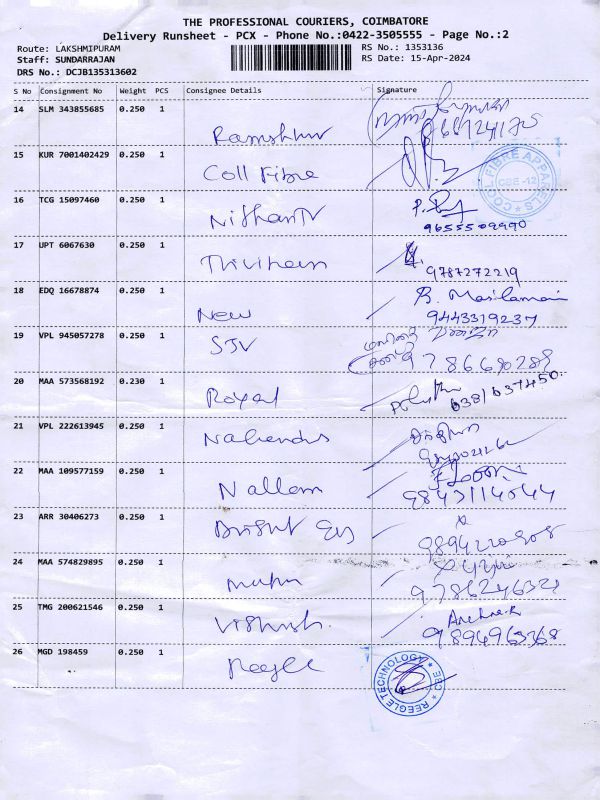 THE PROFESSIONAL COURIERS, COIMBATORE
Delivery Runsheet - PCX - Phone No.:0422-3505555 - Page No.:2
Route: LAKSHMIPURAM RS No.: 1353136
Staff: SUNDARRAJAN RS Date: 15-Apr-2024
DRS No.: DCJB135313602
S No Consignment No Weight PCS Consignee Details Signature
14 SLM 343855685 0.250 1
15 KUR 7001402429 0.250 1 Coll Fibre COLL FIBRE APPARELS CBE-12
16 TCG 15097460 0.250 1 Nishant
9655509990
17 UPT 6067630 0.250 1
9787272219
18 EDQ 16678874 0.250 1 New B. Masilamani
9443319237
19 VPL 945057278 0.250 1 SJV
9786690289
20 MAA 573568192 0.230 1 Royal 6381637450
21 VPL 222613945 0.250 1
22 MAA 109577159 0.250 1 Nallam
9843114044
23 ARR 30406273 0.250 1 Bright
24 MAA 574829895 0.250 1
9786246321
25 TMG 200621546 0.250 1
9894963368
26 MGD 198459 0.250 1 Reegle REEGLE TECHNOLOGY CBE